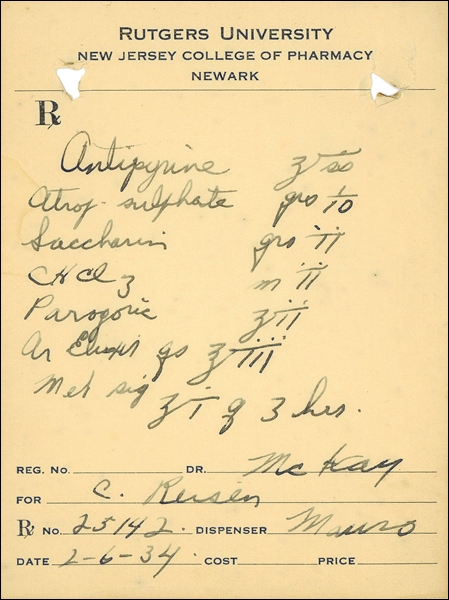 RUTGERS UNIVERSITY
NEW JERSEY COLLEGE OF PHARMACY
NEWARK
℞
Antipyrine ʒ ss
Atrop. sulphate grs 1/10
Saccharin grs ii
CHCl3 m ii
Paregoric ʒ ii
Ar Elixir qs ʒ iii
Met sig ʒ i q 3 hrs.
REG. NO. DR. McKay
FOR C. Reisen
℞ NO. 25142 DISPENSER Mauro
DATE 2-6-34 COST PRICE